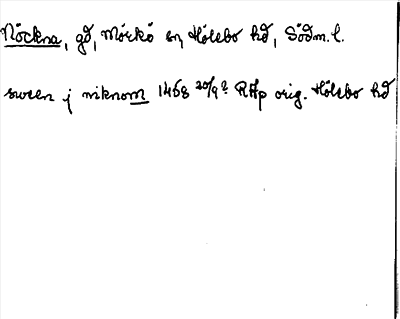 Nöckna, gd, Mörkö sn, Hölebo hd, Södm.l.
swen j niknom 1468 20/9? RAp orig. Hölebo hd